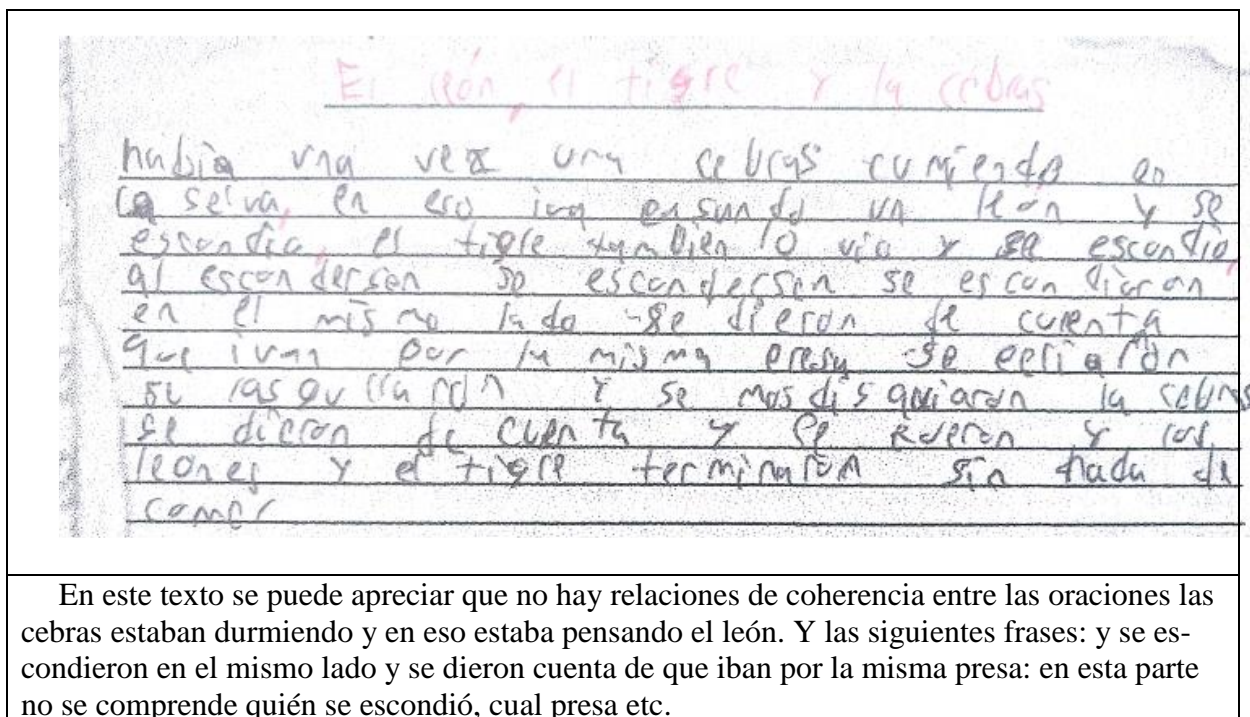 El león, el tigre y la cebras
había una vez una cebras cumiendo en
la selva, en eso iva pasando un león y se
escondio, el tigre tambien lo vio y se escondio,
al escondersen se escondersen se escondiaron
en el mismo lado se dieron de cuenta
que ivan por la misma presa se peliaron
se rasguñaron y se mosdisquiaron la cebras
se dieron de cuenta y se fueron y los
leones y el tigre terminaron sin nada de
comer
En este texto se puede apreciar que no hay relaciones de coherencia entre las oraciones las
cebras estaban durmiendo y en eso estaba pensando el león. Y las siguientes frases: y se es-
condieron en el mismo lado y se dieron cuenta de que iban por la misma presa: en esta parte
no se comprende quién se escondió, cual presa etc.